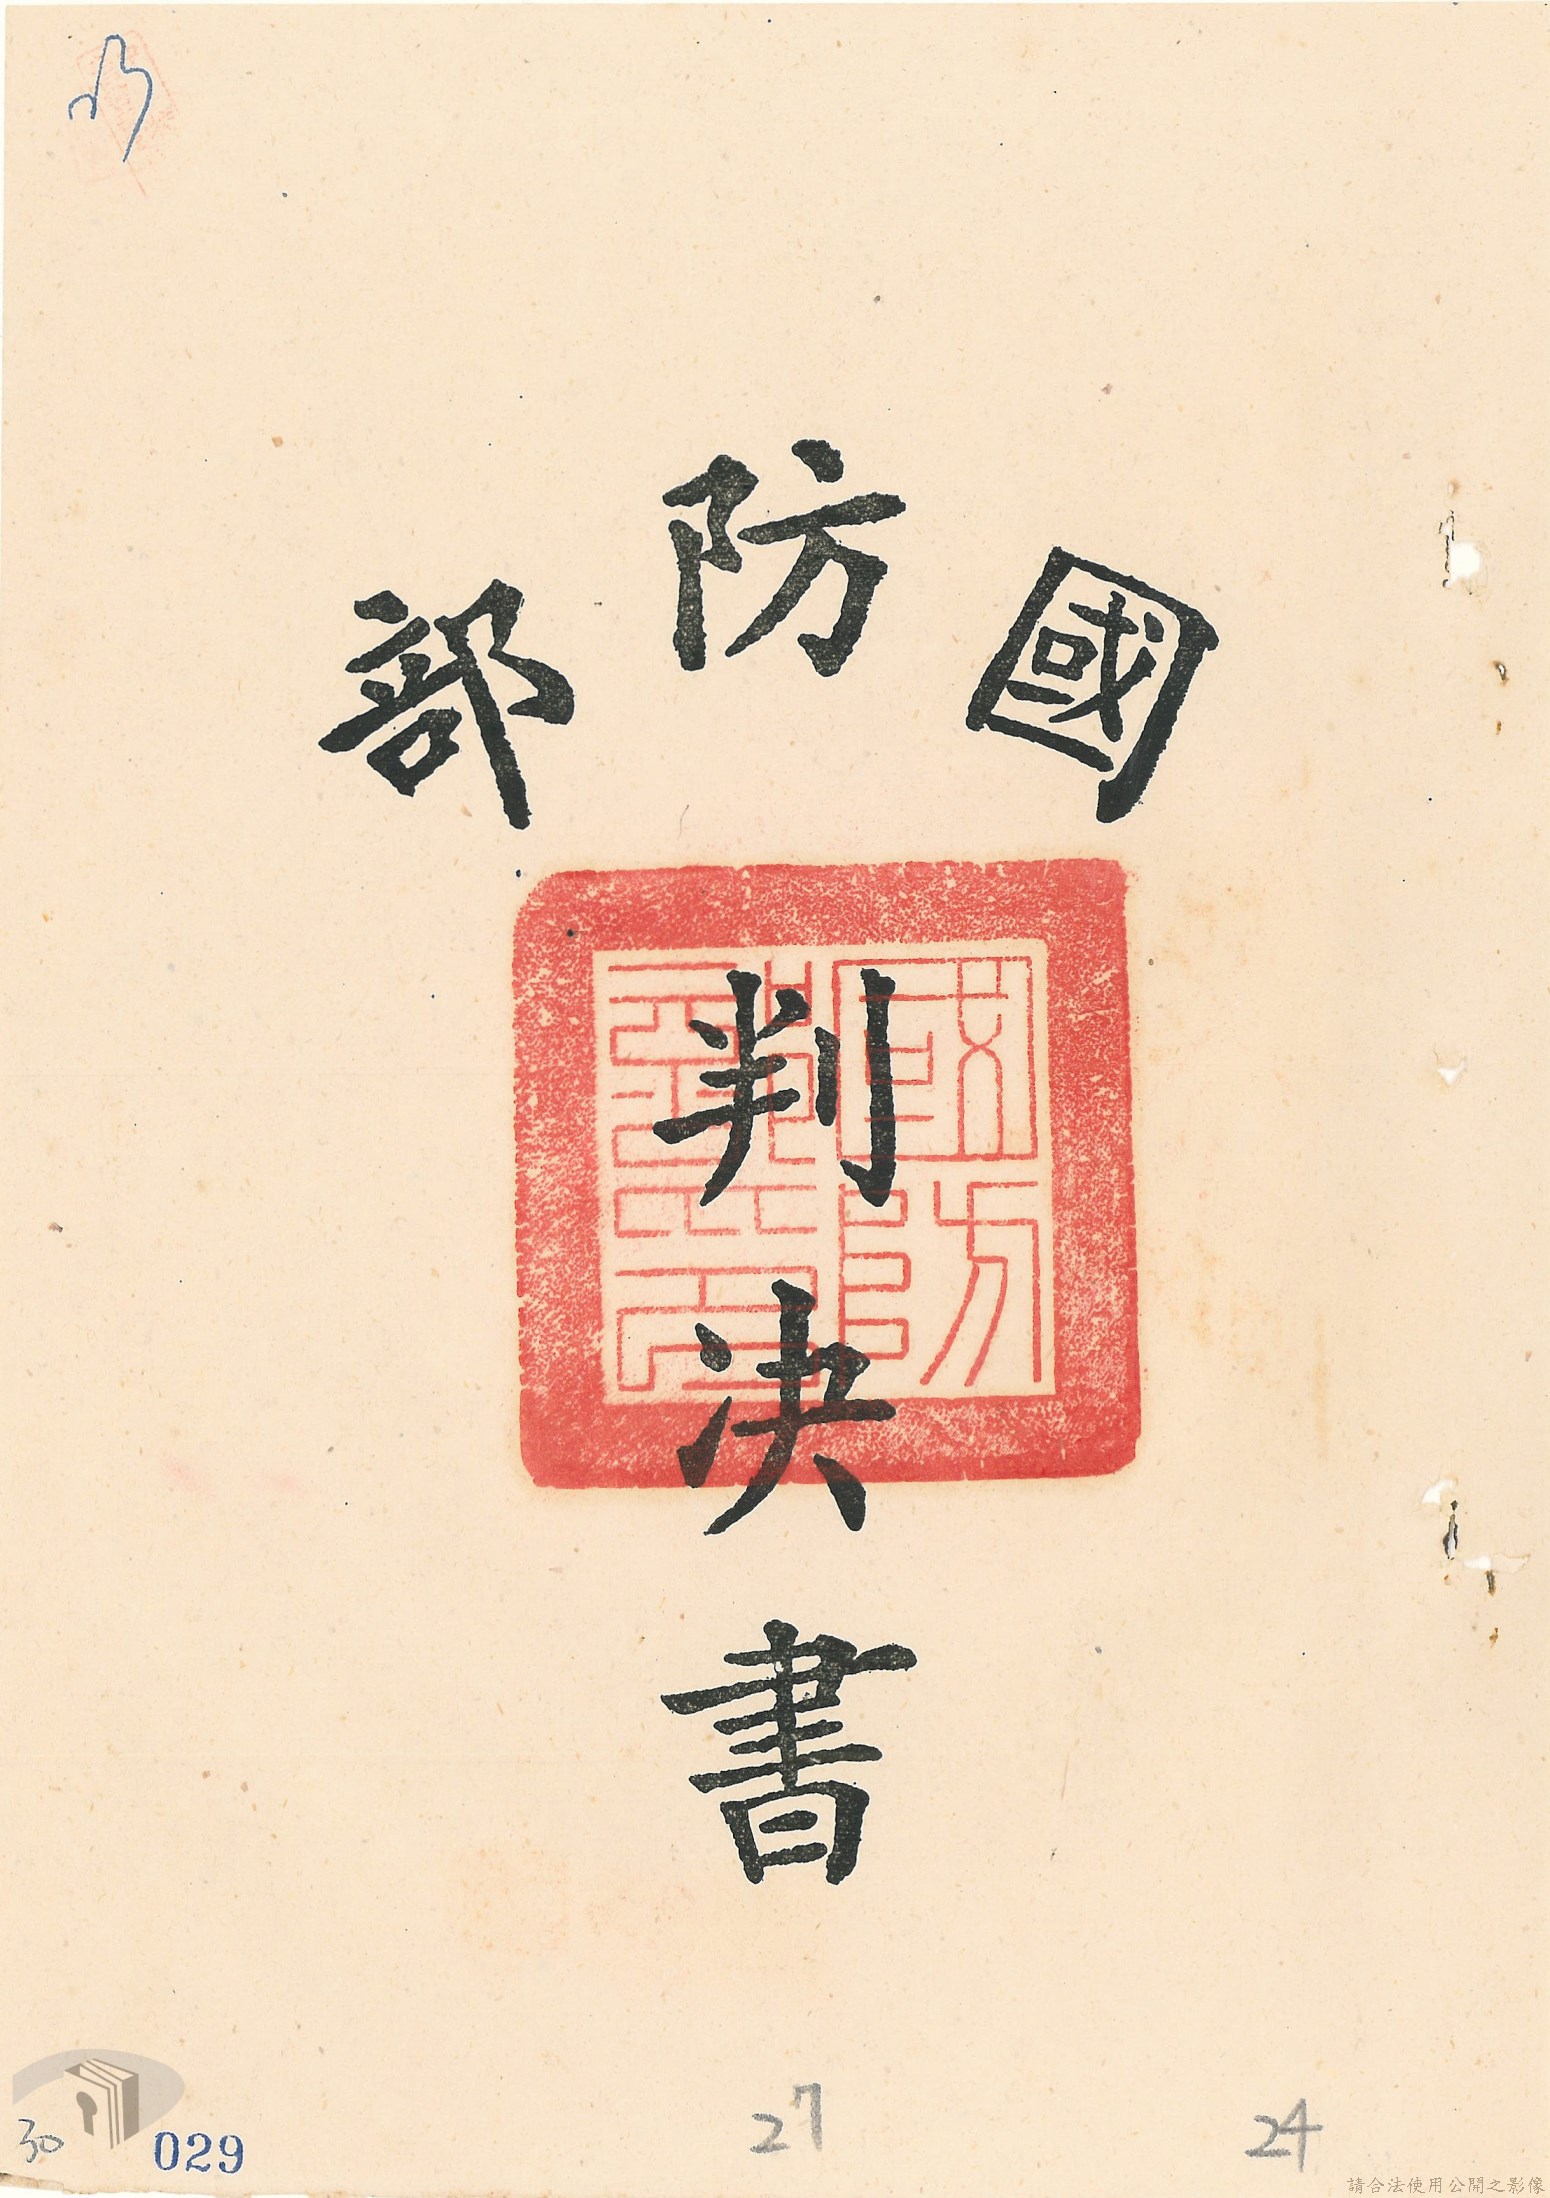 國防部
判決書
國防部印
30
029
27
24
請合法使用公開之影像